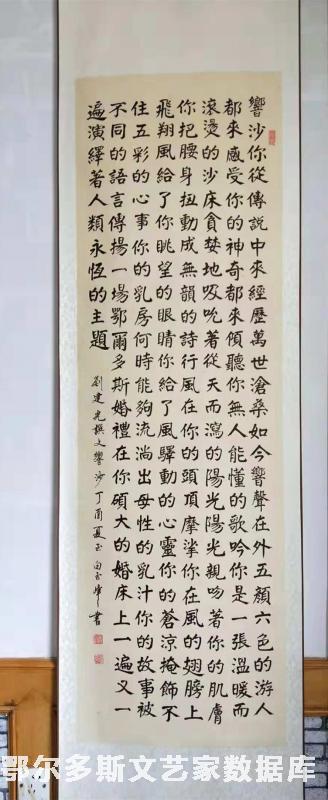 響沙你從傳説中來經歷萬世滄桑如今響聲在外五顏六色的游人
都來感受你的神奇都來傾聽你無人能懂的歌吟你是一張溫暖而
滾燙的沙床貪婪地吸吮著從天而瀉的陽光陽光親吻著你的肌膚
你把腰身扭動成無韻的詩行風在你的頭頂摩挲你在風的翅膀上
飛翔風給了你眺望的眼睛你給了風驛動的心靈你的蒼涼掩飾不
住五彩的心事你的乳房何時能夠流淌出母性的乳汁你的故事被
不同的語言傳揚一場鄂爾多斯婚禮在你碩大的婚床上一遍又一
遍演繹著人類永恆的主題
劉建光撰文響沙丁酉夏玉白玉峰書
鄂尔多斯文艺家数据库